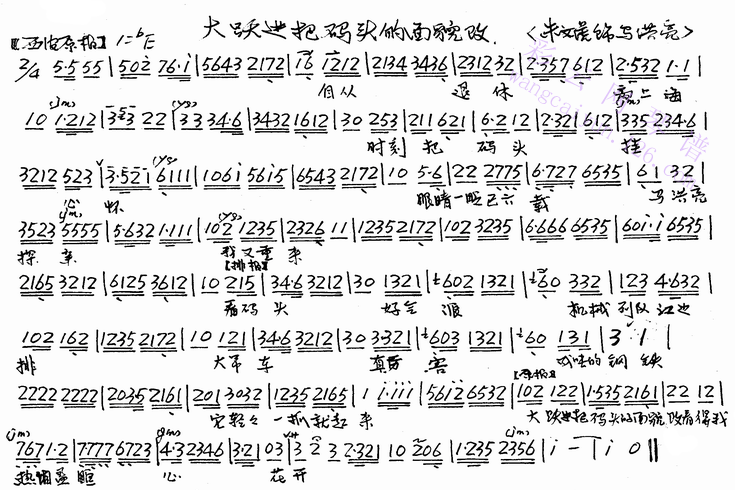 大跃进把码头的面貌改 (朱文虎饰马洪亮)
【西皮原板】 1=♭E
2/4 5·5 55 | 502 76·i | 5643 2172 | 16 1212 | 2134 3436 | 2312 32 | 2·357 612 | 2·532 1·1 |
自从 退休 离上海
10 1·212 | 353 22 | 33 34·6 | 3432 1612 | 30 253 | 211 621 | 6·2 12 | 2·321 612 | 335 234·6 |
时刻把码头 挂
3212 523 | 3·521 6111 | 106i 56i5 | 6543 2172 | 10 5·6 | 22 2775 | 6·727 6535 | 61 32 |
心怀 眼睛一眨已六载 马洪亮
3523 5555 | 5·632 1·111 | 102 1235 | 2326 11 | 1235 2172 | 102 3235 | 6·666 6535 | 60i·i 6535 |
探亲 我又重来
【排板】
2165 3212 | 6125 3612 | 10 215 | 34·6 3212 | 30 1321 | 602 1321 | 60 332 | 123 4·632 |
看码头 好气派 机械列队江边
102 162 | 1235 2172 | 10 121 | 34·6 3212 | 30 3·321 | 603 1321 | 60 131 | 3 1 |
排 大吊车 真厉害 成吨的钢铁
2222 2222 | 2035 2161 | 201 3032 | 1235 2165 | 1 1·111 | 5612 6532 | 102 122 | 1·535 2161 | 22 12 |
它轻轻一抓就起来 大跃进把码头的面貌改看得我
7671·2 | 7·777 6723 | 4·32346 | 3·21 03 | 3 2 3 2·321 | 10 206 | 1·235 2356 | i - | i 0 ‖
热泪盈眶 心花开